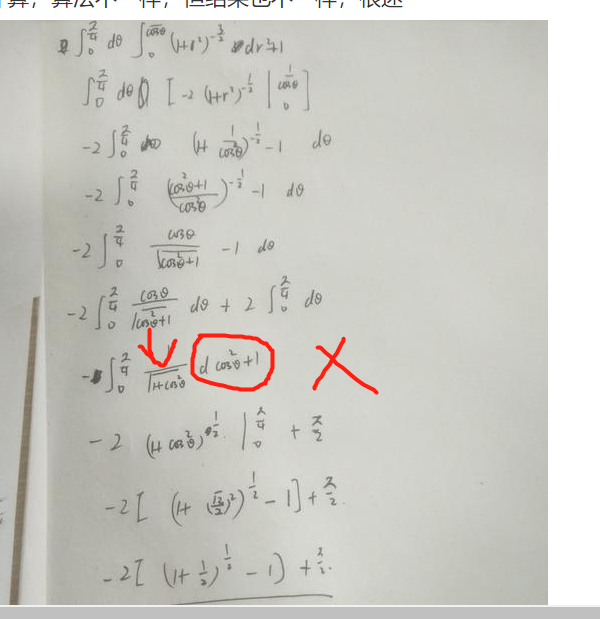 算，算法不一样，但结果也不一样，很迷
∫₀^{π/4} dθ ∫₀^{1/cosθ} (1+r²)^{-3/2} dr²+1
∫₀^{π/4} dθ [-2 (1+r²)^{-1/2} |₀^{1/cosθ}]
-2 ∫₀^{π/4} (1+ 1/cos²θ)^{-1/2} -1 dθ
-2 ∫₀^{π/4} (cos²θ+1/cos²θ)^{-1/2} -1 dθ
-2 ∫₀^{π/4} cosθ/√(cos²θ+1) -1 dθ
-2 ∫₀^{π/4} cosθ/√(cos²θ+1) dθ + 2 ∫₀^{π/4} dθ
- ∫₀^{π/4} 1/√(1+cos²θ) d cos²θ+1
-2 (1+cos²θ)^{1/2} |₀^{π/4} + π/2
-2 [ (1+ (√2/2)²)^{1/2} -1] + π/2.
-2 [ (1+ 1/2)^{1/2} -1) + π/2.